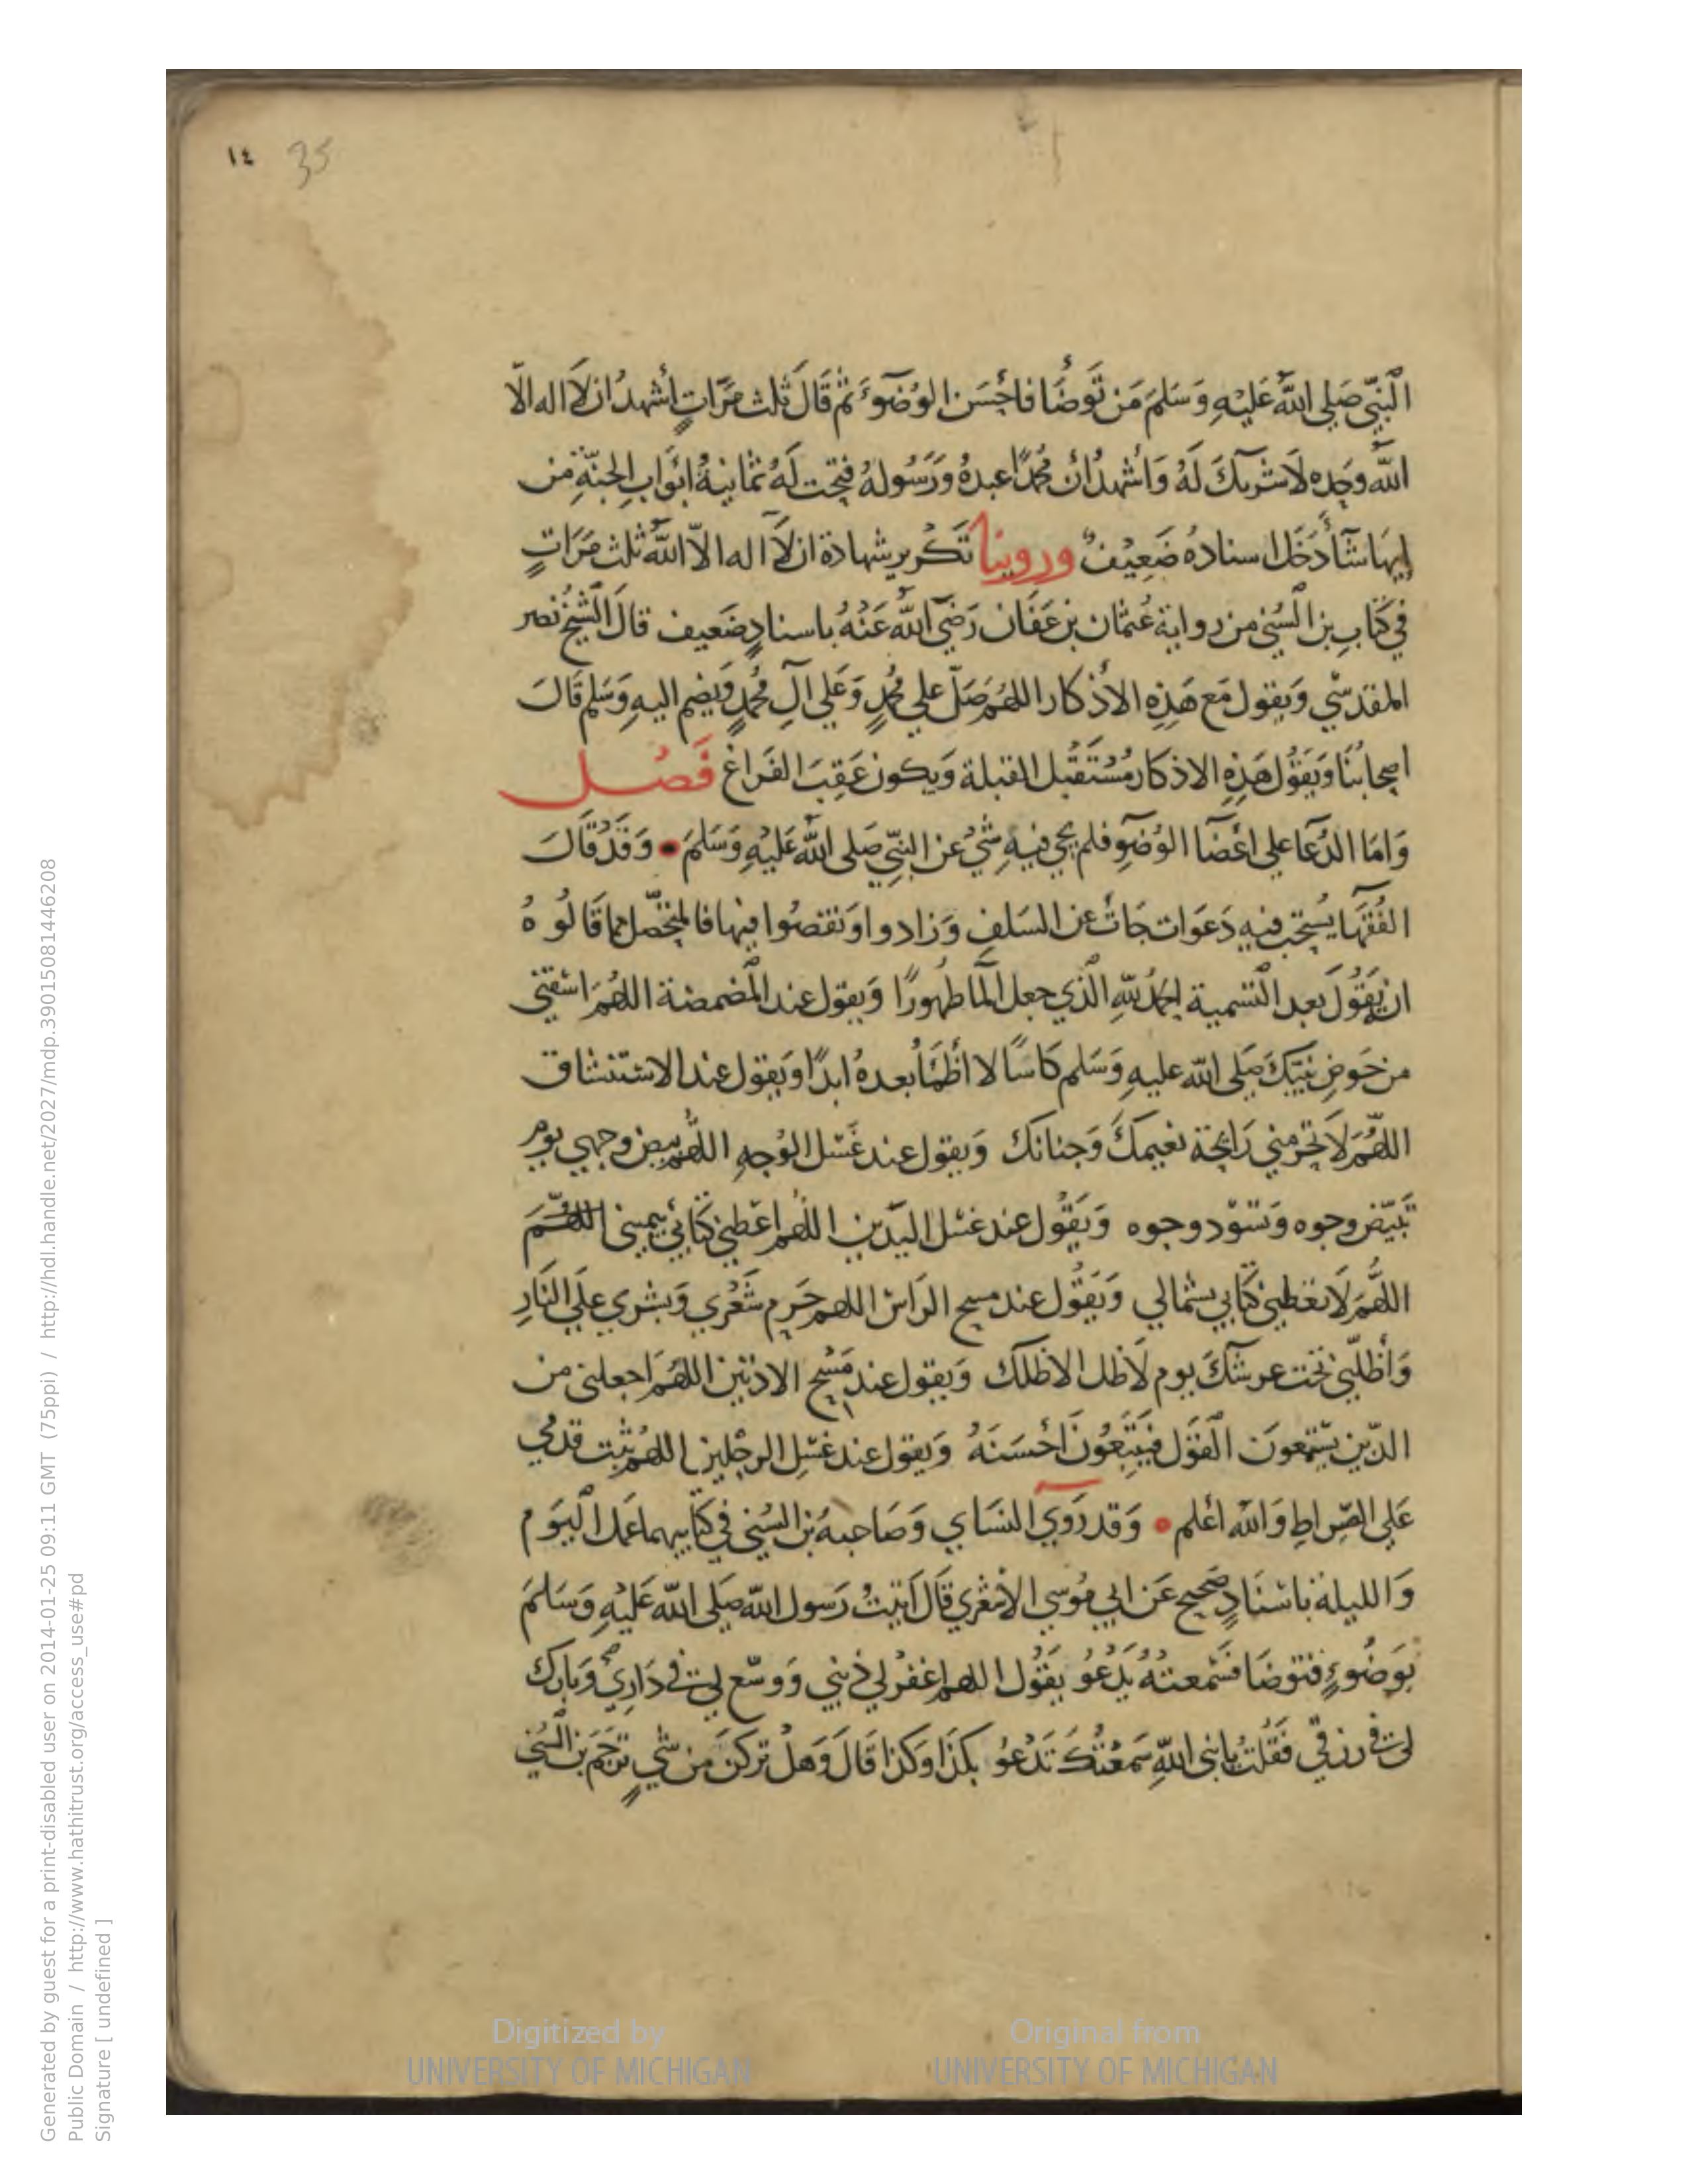 ١٤ 35
النَّبِيّ صَلى اللهُ عَليْهِ وَسَلمَ مَن تَوَضَا فَاحْسَن الوُضوءَ ثم قَالَ ثلث مَرّاتٍ أشهدُ ان لَا اله الّا
اللهُ وحده لَا شَريكَ لَهُ وَاَشهدُ انّ مُحَمّدًا عبدهُ وَرَسُولهُ فتحت لَهُ ثمانيةُ ابْوَابِ الجنّةِ من
ايهَا شآ دَخَل اسنادهُ ضَعِيْفٌ وروينا تَكْرير شهادة ان لَا اله الّا اللهُ ثلث مَرَاتٍ
في كتَابِ بن السُني من رواية عُثمان بن عَفان رَضيَ اللهُ عَنْهُ باسنادٍ ضَعيف قالَ الشيخ نصر
المقدسي وَيقول مَع هَذِهِ الأذكار اللهُم صَلّ علي مُحمدٍ وَعَلي آلِ مُحمدٍ وَيضم اليهِ وَسَلم قَالَ
اصحابُنَا وَيَقوُل هَذِهِ الاذكار مُسْتَقْبل القبلة وَيكون عَقِبَ الفَراغ فَصْل
وَامَا الدُعَا علي اعْضَا الوُضوِ فلم يجي فيهِ شيْ عن النبيّ صَلى اللهُ عَليْهِ وَسَلمَ وَقَدْ قَالَ
الفُقهَا يُستحب فيهِ دَعَوات جَاتْ عن السَلفِ وَزادوا وَنقصُوا فيها فالمتحَصّل مما قَالُوهُ
ان يَقُوُل بعد التَسمية الحمدُ للهِ الّذي جعل المَا طهُورًا وَيقول عند المَضمضة اللهُمَ اسْقني
من حَوضِ نبيّكَ صَلى الله عليهِ وَسَلم كَاسًا لا اظْمَأ بعدهُ ابدًا وَيقول عند الاستنشاق
اللهُمَ لَا تحرمني رَايحَة نعيمكَ وَجنانك وَيقول عند غَسْل الوَجهِ اللهُم بيض وجهي يوم
تَبيَضّ وجوه وَتسْوّد وجوه وَيَقُول عند غسْل اليَدَين اللهُم اعْطني كتَابي بيميني اللهُمَ
اللهُمَ لَا تعْطني كتابي بشمالي وَيَقُول عند مسح الرَاس اللهم حَرم شَعْري وَبشري عَلي النَارِ
وَأظلّني تحْت عرشكَ يوم لَا ظل الا ظلك وَيقول عند مَسْح الاذنين اللهُمَ اجعلنى من
الذّين يسْتمعونَ القَول فَيَتَبِعُونَ احْسَنَهُ وَيقول عند غسْلِ الرجْلين اللهُم ثبت قدمي
عَلي الصّراطِ وَالله أعْلم وَقد رَوي النسَاي وَصَاحبهُ بن السُني في كتابيهما عمَل اليَوم
وَالليلة باسْنَادٍ صَحيح عَن ابي مُوسي الأشعَري قَالَ اَتيتُ رَسول الله صَلى الله عَليْهِ وَسَلمَ
بوَضُوءٍ فتوضا فسَمعتهُ يَدْعُو يَقُول اللهم اغْفرْ لي ذَنبي وَوسّع لي في دَاري وَبارك
لي في رزقي فَقُلتُ يا نبي اللهِ سَمعْتُكَ تَدْعُو بكذَا وكذا قَالَ وَهلْ تركنَ من شيٍ ترجَم بن السُني
Generated by guest for a print-disabled user on 2014-01-25 09:11 GMT (75ppi) / http://hdl.handle.net/2027/mdp.39015081446208
Public Domain / http://www.hathitrust.org/access_use#pd
Signature [ undefined ]
Digitized by UNIVERSITY OF MICHIGAN
Original from UNIVERSITY OF MICHIGAN